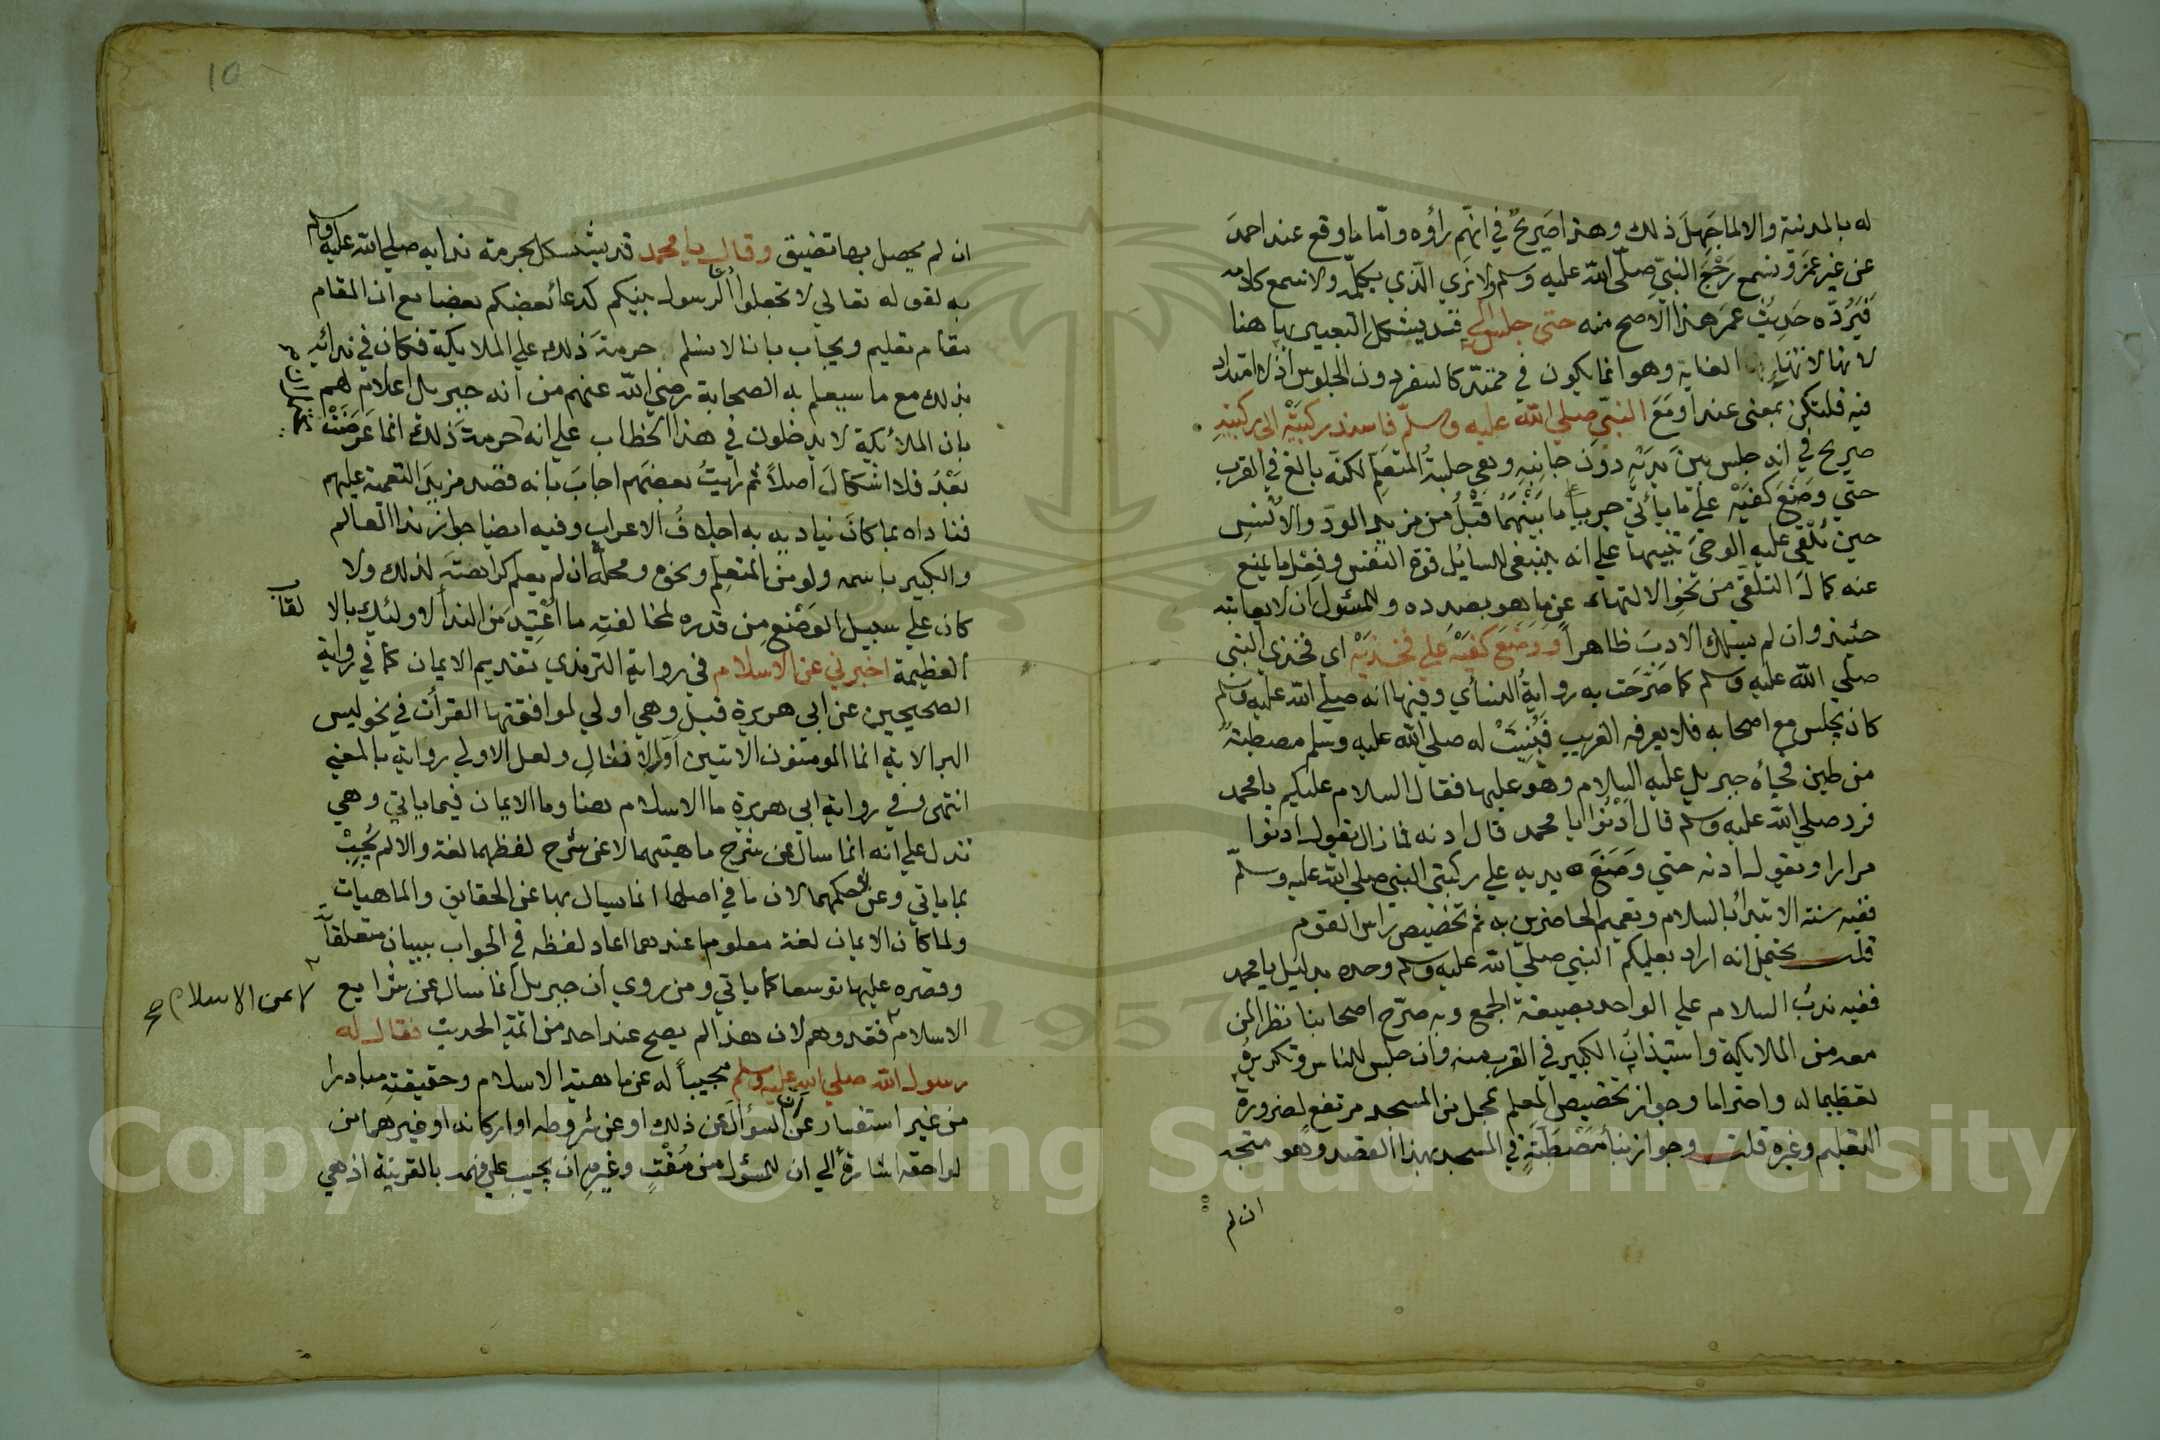 له بالمدينة والا لما جهل ذلك وهذا صريح في انهم راؤه واما ما وقع عند احمد
عن غير عمر ونسمع رجع النبي صلى الله عليه وسلم ولا نري الذي يكلمه ولا نسمع كلامه
فيرده حديث عمر هذا الاصح منه حتي جلس الي قد يشكل التعبير بها هنا
لانها لانتهاء الغاية وهو انما يكون في ممتد كالسفر دون الجلوس اذ لا امتداد
فيه فلتكن بمعني عند او مع النبي صلي الله عليه وسلم فاسند ركبتيه الى ركبتيه
صريح في انه جلس بين يديه دون جانبه وهي جلسة المتعلم لكنه بالغ في القرب
حتي وضع كفيه علي ما يأتي جريا علي ما بينهما قبل من مزيد الود والانس
حين يلقي عليه الوحي تنبيها علي انه ينبغي للسايل قوة النفس وفعل ما يمنع
عنه كمال التلقي من نحو الالتهاء عن ما هو بصدده وللمسئول ان لا يعاتبه
حينئذ وان لم يسلك الادب ظاهرا ووضع كفيه علي فخذيه اي فخذي النبي
صلي الله عليه وسلم كما صرحت به رواية النسأي وفيها انه صلي الله عليه وسلم
كان يجلس مع اصحابه فلا يعرفه الغريب فبنيت له صلي الله عليه وسلم مصطبة
من طين فجأه جبريل عليه السلام وهو عليها فقال السلام عليكم يا محمد
فرد صلي الله عليه وسلم قال أدنوا يا محمد قال ادنه فما زال يقول ادنوا
مرارا ويقول ادنه حتي وضع يديه علي ركبتي النبي صلي الله عليه وسلم
ففيه سنة الابتدأ بالسلام وتعميم الحاضرين به ثم تخصيص راس القوم
قلت يحتمل انه اراد بعليكم النبي صلي الله عليه وسلم وحده بدليل يا محمد
ففيه ندب السلام علي الواحد بصيغة الجمع وبه صرح اصحابنا نظرا لمن
معه من الملايكة واستيذان الكبير في القرب منه وان جلس للناس وتكريره
تعظيما له واحتراما وجواز تخصيص المعلم بمحل من المسجد مرتفع لضرورة
التعليم وغيره قلت وجواز بنأ مصطبة في المسجد بهذا القصد وهو متجه
ان لم
10
ان لم يحصل بها تضييق وقال يا محمد قد يشكل بحرمة ندايه صلي الله عليه وسلم
به لقوله تعالي لا تجعلوا دعاء الرسول بينكم كدعأ بعضكم بعضا مع ان المقام
مقام تعليم ويجاب بانا لا نسلم حرمة ذلك علي الملايكة فكان في ندائه
بذلك مع ما سيعلم به الصحابة رضي الله عنهم من انه جبريل اعلام لهم
بان الملائكة لا يدخلون في هذا الخطاب علي انه حرمة ذلك انما عرضت
بعد فلا اشكال اصلا ثم رايت بعضهم اجاب بانه قصد مزيد التعمية عليهم
فناداه بما كان يناديه به اجلاف الاعراب وفيه ايضا جواز ندا العالم
والكبير باسمه ولو من المتعلم ونحوه ومحله ان لم يعلم كراهته لذلك ولا
كان علي سبيل الوضع من قدره لمخالفته ما اعتيد من الندأ لاولئك بالا
لقاب
العظيمة اخبرني عن الاسلام في رواية الترمذي تقديم الايمان كما في رواية
الصحيحين عن ابي هريرة قيل وهي اولي لموافقتها القرأن في نحو ليس
البر الاية انما المومنون الايتين اول الانفال ولعل الاولي رواية بالمعني
انتهى وفي رواية ابي هريرة ما الاسلام هنا وما الايمان فيما ياتي وهي
تدل علي انه انما سال عن شرح ماهيتهما لا عن شرح لفظهما لغة والا لم يجب
بما ياتي وعن حكمهما لان ما في اصلها انما يسال بها عن الحقايق والماهيات
ولما كان الايمان لغة معلوما عندهما اعاد لفظه في الجواب ببيان متعلقاته
وقصره عليها توسعا كما ياتي ومن روي ان جبريل انما سال عن شرايع
لا عن الاسلام صح
الاسلام فقد وهم لان هذا لم يصح عند احد من ائمة الحديث فقال له
رسول الله صلي الله عليه وسلم مجيبا له عن ماهية الاسلام وحقيقته مبادرا
من غير استفسار عن السؤال عن ذلك او عن شروطه او اركانه او غيرهما من
لواحقه اشارة الي ان للمسئول من مفت وغيره ان يجيب علي فهمه بالقرينة اذ هي
Copyright © King Saud University
1957